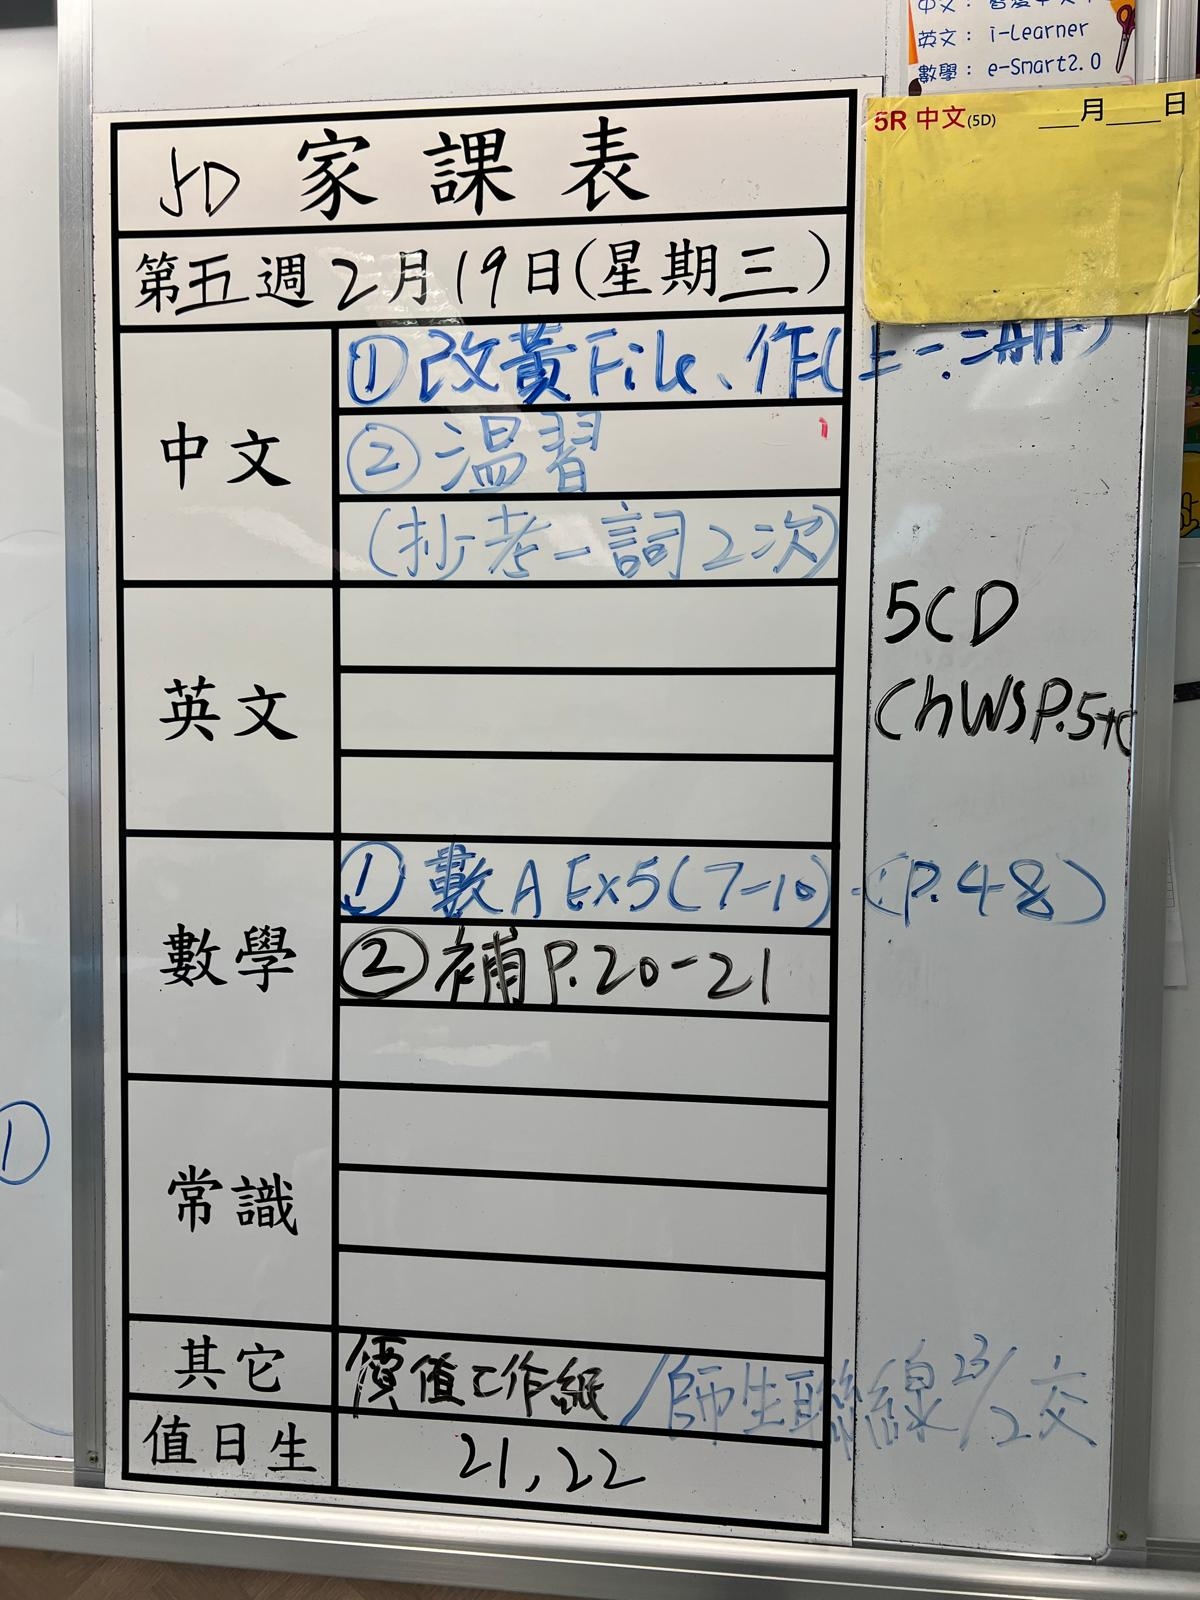 英文： i-Learner
數學： e-Smart2.0
5R 中文(5D) ___月____日
5D 家課表
第五週2月19日(星期三)
中文
①改黃File、作(上一.二冊)
②溫習
(抄考一詞2次)
英文
5CD
ChWSP.5+6
數學
①數A Ex5(7-10).(P.48)
②補P.20-21
①
常識
其它
價值工作紙/師生聯線23/2交
值日生
21,22